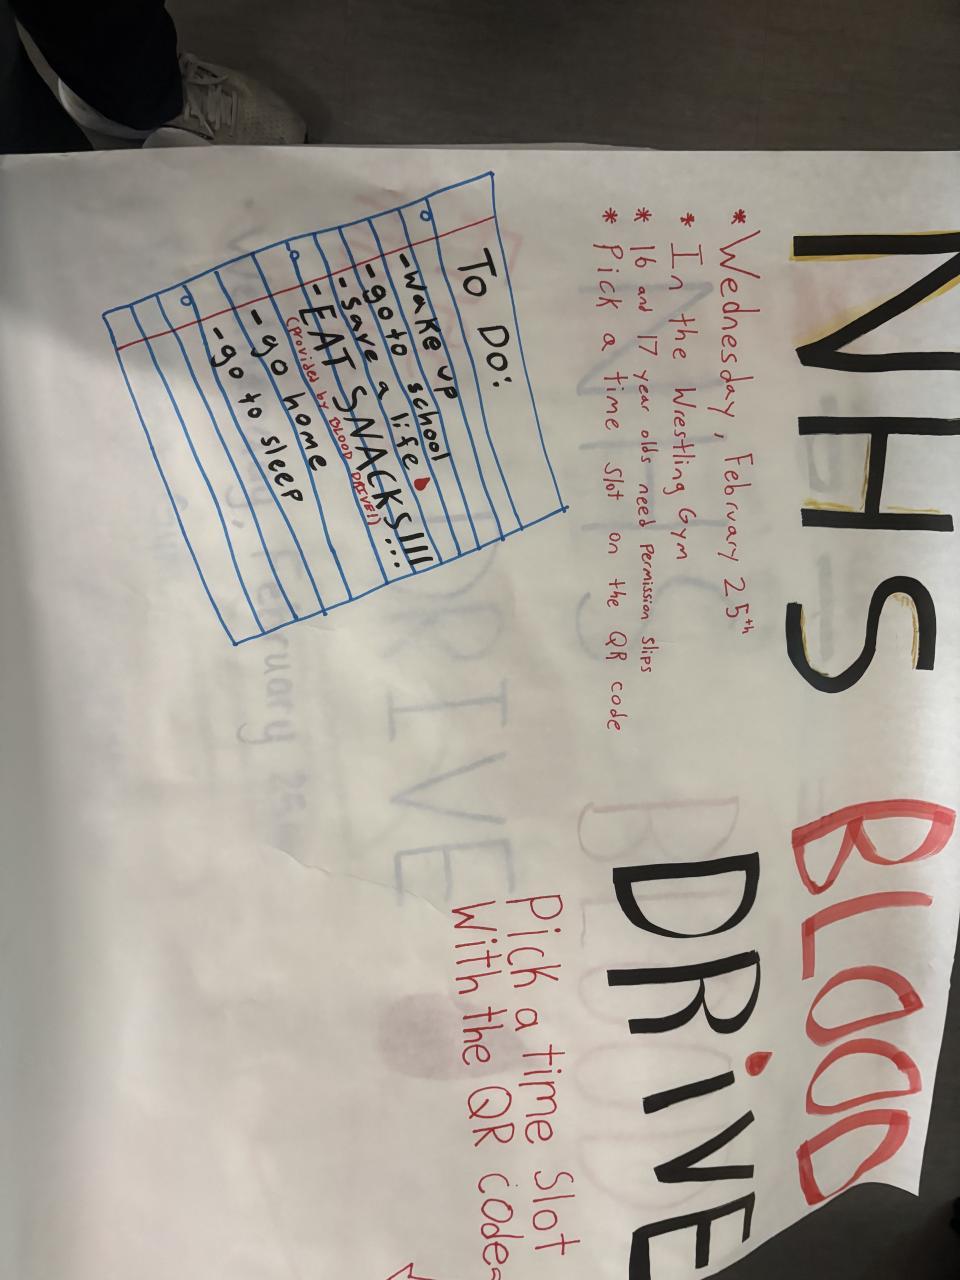 NHS BLOOD
DRIVE
* Wednesday, February 25th
* In the Wrestling Gym
* 16 and 17 year olds need permission slips
* Pick a time slot on the QR code
Pick a time slot
With the QR code
To Do:
-wake up
-go to school
-save a life
-EAT SNACKS!!!...
(provided by BLOOD DRIVE!)
-go home
-go to sleep
DRIVE
February 25